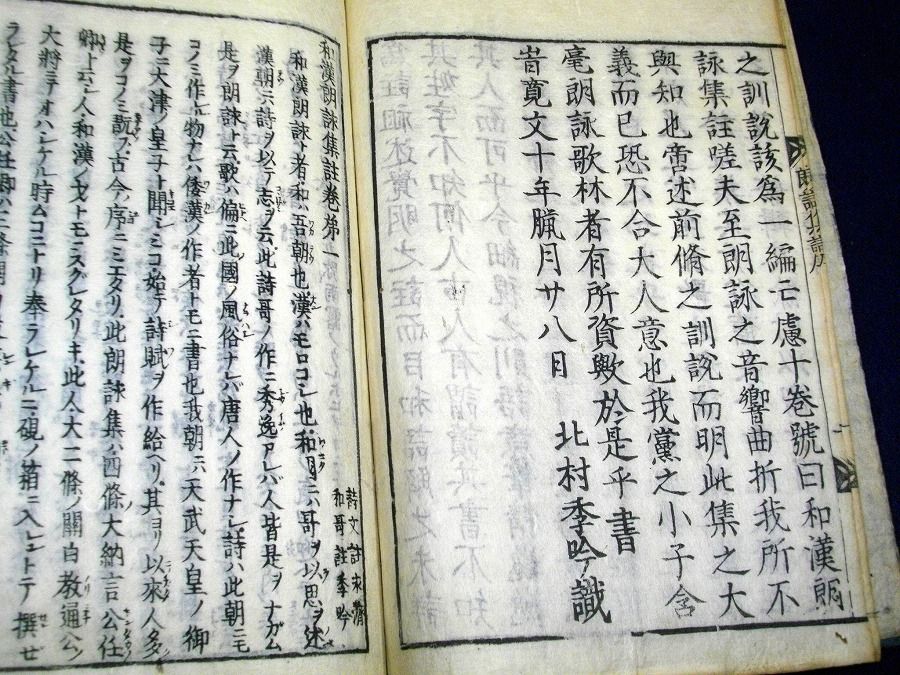 之訓說該為一編亡慮十卷號曰和漢朗
詠集註嗟夫至朗詠之音響曲折我所不
與知也啻述前脩之訓說而明此集之大
義而已恐不合大人意也我黨之小子含
毫朗詠歌林者有所資歟於是乎書
旹寛文十年臘月廿八日
北村季吟識
朗詠集註序
和漢朗詠集註卷第一
詩文註永濟
和哥註季吟
和漢朗詠ト者和ハ吾朝也漢ハモロコシ也和朝ニハ哥ヲ以思ヲ述
漢朝ニハ詩ヲ以テ志ヲ云此詩哥ノ作ニ秀逸アレバ人皆是ヲナガム
是ヲ朗詠ト云歌ハ偏ニ此國ノ風俗ナレバ唐人ノ作ナシ詩ハ此朝ニモ
コノミ作レル物ナレハ倭漢ノ作者トモニ書也我朝ニハ天武天皇ノ御
子大津ノ皇子ト聞ヘシミコ始テ詩賦ヲ作給ヘリ其ヨリ以來人多
是ヲコノミ翫フ古今ノ序ニミエタリ此朗詠集ハ四條大納言公任
卿ト云人和漢ノ才トモニスグレタリキ此人大二條ノ關白教通公ノ
大將ニテオハシケル時ムコニトリ奉ラレケルニ硯ノ箱ニ入レントテ撰ゼ
ラレタル書也公任卿ハ